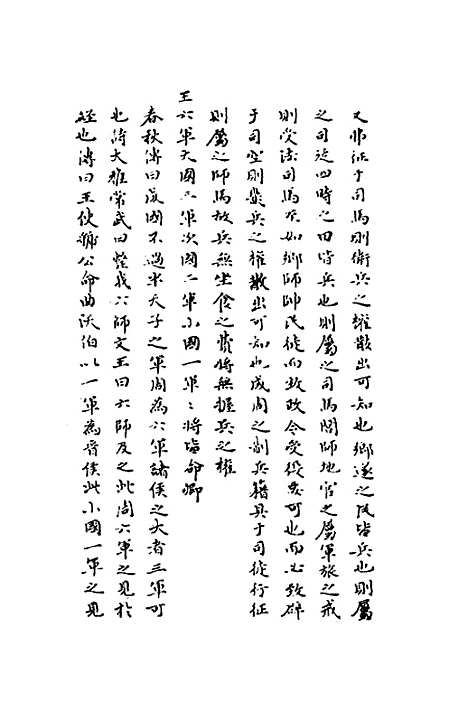 又弗征于司馬則衛兵之權散出可知也鄉遂之民皆兵也則屬
之司徒四時之田皆兵也則屬之司馬閭師地官之屬軍旅之戒
則受法司馬不如鄉師帥民徒而致政令受役處可也而必致辟
于司空則裴兵之權散出可知也成周之制兵籍具于司徒行征
則屬之師馬故兵無坐食之費將無握兵之權
王六軍大國三軍次國二軍小國一軍軍將皆命卿
春秋傳曰成國不過半天子之軍周為六軍諸侯之大者三軍可
也詩大雅常武曰整我六師文王曰六師及之此周六軍之見於
經也傳曰王使虢公命曲沃伯以一軍為晉侯此小國一軍之見